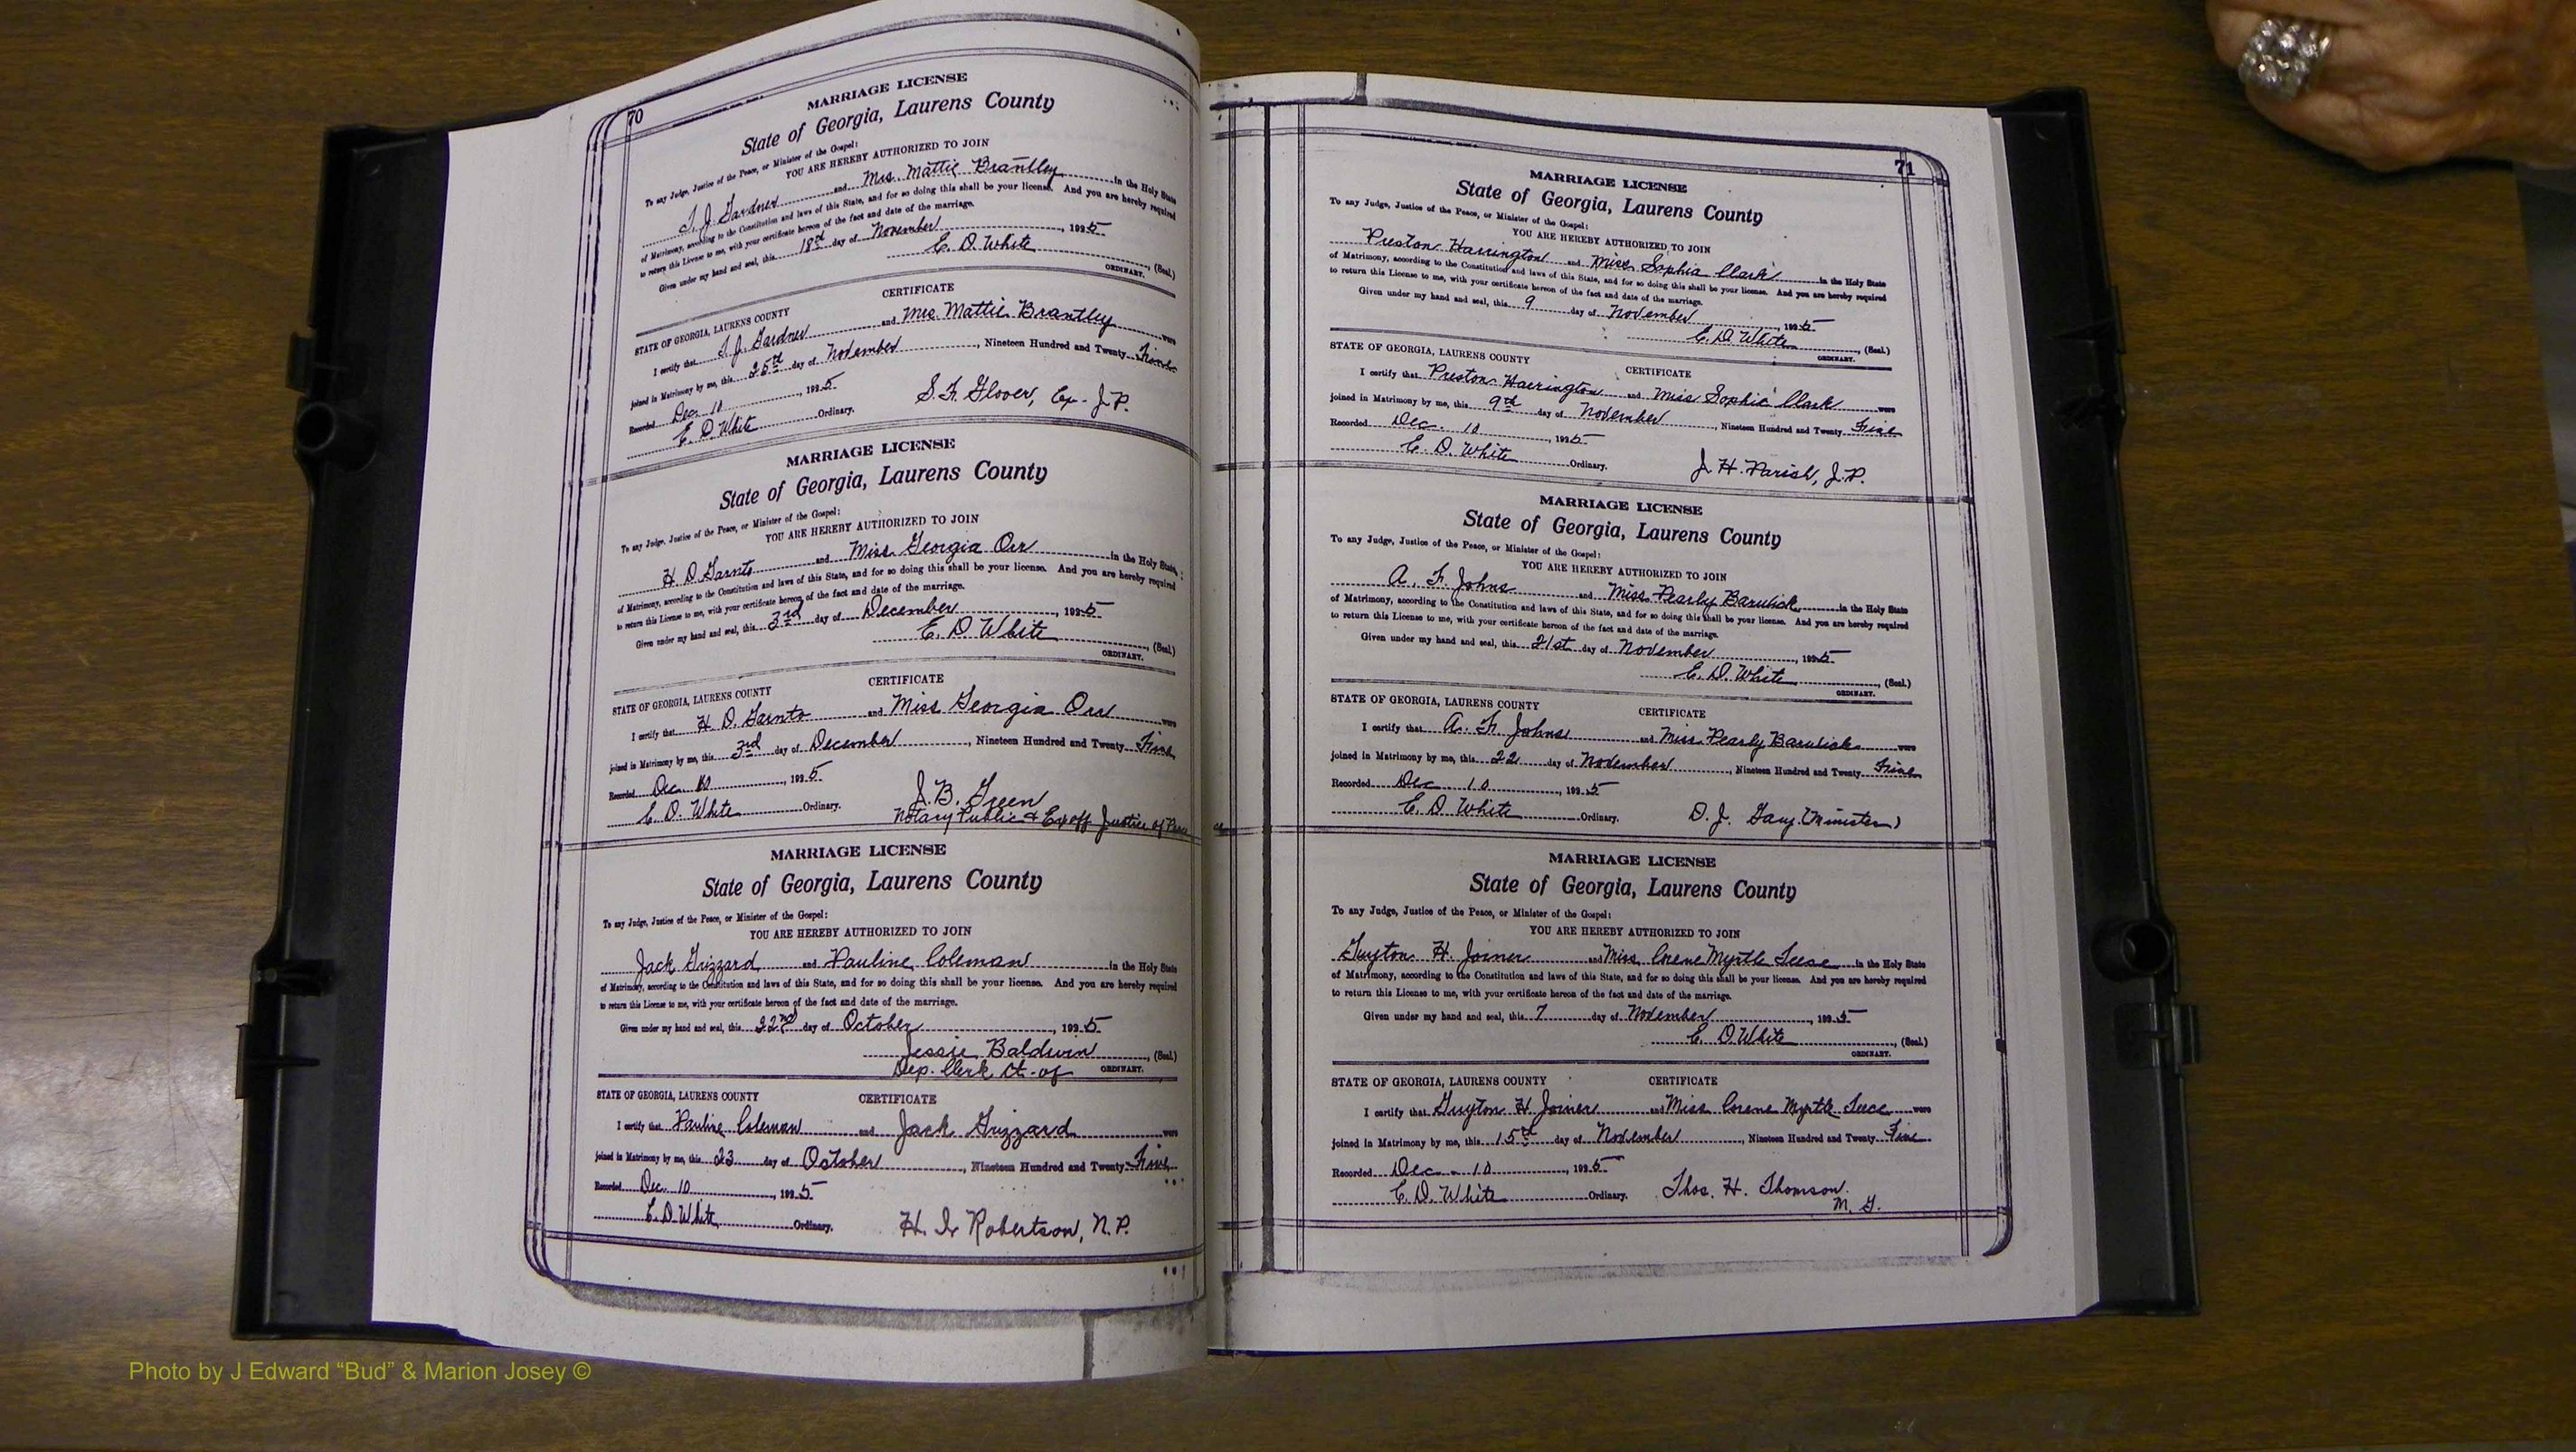 70
MARRIAGE LICENSE
State of Georgia, Laurens County
To any Judge, Justice of the Peace, or Minister of the Gospel:
YOU ARE HEREBY AUTHORIZED TO JOIN
J. Gardner and Mrs Mattie Brantley in the Holy State
of Matrimony, according to the Constitution and laws of this State, and for so doing this shall be your license. And you are hereby required
to return this License to me, with your certificate hereon of the fact and date of the marriage.
Given under my hand and seal, this 18th day of November, 1925
E. D. White, (Seal.)
ORDINARY.
CERTIFICATE
STATE OF GEORGIA, LAURENS COUNTY
I certify that J. Gardner and Mrs Mattie Brantley were
joined in Matrimony by me, this 25th day of November, Nineteen Hundred and Twenty Five
Recorded Dec. 10, 1925
E. D. White Ordinary. S. F. Glover, Ex- J.P.
MARRIAGE LICENSE
State of Georgia, Laurens County
To any Judge, Justice of the Peace, or Minister of the Gospel:
YOU ARE HEREBY AUTHORIZED TO JOIN
H. D. Garnto and Miss Georgia Orr in the Holy State
of Matrimony, according to the Constitution and laws of this State, and for so doing this shall be your license. And you are hereby required
to return this License to me, with your certificate hereon of the fact and date of the marriage.
Given under my hand and seal, this 3rd day of December, 1925
E. D. White, (Seal.)
ORDINARY.
CERTIFICATE
STATE OF GEORGIA, LAURENS COUNTY
I certify that H. D. Garnto and Miss Georgia Orr were
joined in Matrimony by me, this 3rd day of December, Nineteen Hundred and Twenty Five
Recorded Dec. 10, 1925
E. D. White Ordinary. J. B. Green
Notary Public & Ex off Justice of Peace
MARRIAGE LICENSE
State of Georgia, Laurens County
To any Judge, Justice of the Peace, or Minister of the Gospel:
YOU ARE HEREBY AUTHORIZED TO JOIN
Jack Grizzard and Pauline Coleman in the Holy State
of Matrimony, according to the Constitution and laws of this State, and for so doing this shall be your license. And you are hereby required
to return this License to me, with your certificate hereon of the fact and date of the marriage.
Given under my hand and seal, this 22nd day of October, 1925
Jessie Baldwin, (Seal)
Dep. Clerk Ct. of ORDINARY.
STATE OF GEORGIA, LAURENS COUNTY CERTIFICATE
I certify that Pauline Coleman and Jack Grizzard were
joined in Matrimony by me, this 23 day of October, Nineteen Hundred and Twenty Five
Recorded Dec. 10, 1925
E. D. White Ordinary. H. I. Robertson, N.P.
71
MARRIAGE LICENSE
State of Georgia, Laurens County
To any Judge, Justice of the Peace, or Minister of the Gospel:
YOU ARE HEREBY AUTHORIZED TO JOIN
Preston Harrington and Miss Sophia Clark in the Holy State
of Matrimony, according to the Constitution and laws of this State, and for so doing this shall be your license. And you are hereby required
to return this License to me, with your certificate hereon of the fact and date of the marriage.
Given under my hand and seal, this 9 day of November, 1925
E. D. White, (Seal.)
ORDINARY.
STATE OF GEORGIA, LAURENS COUNTY CERTIFICATE
I certify that Preston Harrington and Miss Sophie Clark were
joined in Matrimony by me, this 9th day of November, Nineteen Hundred and Twenty Five
Recorded Dec. 10, 1925
E. D. White Ordinary. J. H. Parish, J.P.
MARRIAGE LICENSE
State of Georgia, Laurens County
To any Judge, Justice of the Peace, or Minister of the Gospel:
YOU ARE HEREBY AUTHORIZED TO JOIN
A. F. Johns and Miss Pearly in the Holy State
of Matrimony, according to the Constitution and laws of this State, and for so doing this shall be your license. And you are hereby required
to return this License to me, with your certificate hereon of the fact and date of the marriage.
Given under my hand and seal, this 21st day of November, 1925
E. D. White, (Seal.)
ORDINARY.
STATE OF GEORGIA, LAURENS COUNTY CERTIFICATE
I certify that A. F. Johns and Miss Pearly were
joined in Matrimony by me, this 22 day of November, Nineteen Hundred and Twenty Five
Recorded Dec. 10, 1925
E. D. White Ordinary. D. J. (Minister)
MARRIAGE LICENSE
State of Georgia, Laurens County
To any Judge, Justice of the Peace, or Minister of the Gospel:
YOU ARE HEREBY AUTHORIZED TO JOIN
Guyton H. Joiner and Miss Corene Myrtle in the Holy State
of Matrimony, according to the Constitution and laws of this State, and for so doing this shall be your license. And you are hereby required
to return this License to me, with your certificate hereon of the fact and date of the marriage.
Given under my hand and seal, this 7 day of November, 1925
E. D. White, (Seal.)
ORDINARY.
STATE OF GEORGIA, LAURENS COUNTY CERTIFICATE
I certify that Guyton H. Joiner and Miss Corene Myrtle were
joined in Matrimony by me, this 15th day of November, Nineteen Hundred and Twenty Five
Recorded Dec. 10, 1925
E. D. White Ordinary. Thos. H. Thomson
M. G.
Photo by J Edward “Bud” & Marion Josey ©